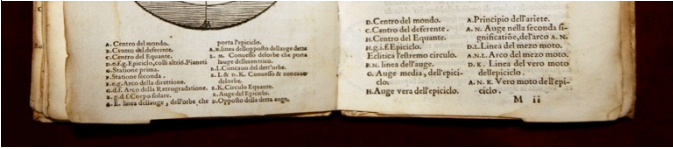 A. Centro del mondo.
B. Centro del deferente.
C. Centro del Equante.
D.e.f.g. Epiciclo, colli altri d. Pianeti
G. Statione prima.
F. Statione seconda.
F.e.g. Arco della direttione.
G.d.f. Arco della Retrogradatione.
E.g.d.f. Corpo solare.
G.L. linea dellauge, dell'orbe, che
porta l'epiciclo.
A.B. linea dell'opposto dell'auge detta
L. M. Conuesso delorbe che porta
lauge dellecentrico.
D.I. Concauo del dett'orbe.
L. & D.K. Conuesso & concauo
delorbe.
F.K. Circulo Equante.
E. Auge del Epiciclo.
D. Opposto dilla detta auge.
D. Centro del mondo.
C. Centro del deferente.
B. Centro del Equante.
H.g.i.f. Epiciclo.
Eclitica l'estremo circulo.
F.N. linea dell'auge.
G. Auge media, dell'epici-
clo.
H. Auge vera dell'epiciclo.
A. Principio dell'ariete.
A. N. Auge nella seconda si-
gnificatiõe, del'arco A. N.
D.L. Linea del mezo moto.
A.N.L. Arco del mezo moto.
D. K. Linea del vero moto
dell'epiciclo.
A. N. K. Vero moto dell'epi-
ciclo.
M ii